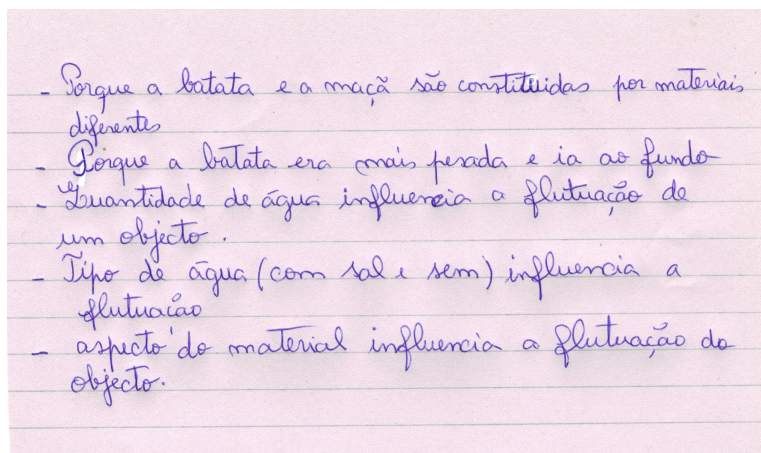 - Porque a batata e a maçã são constituidas por materiais
diferentes
- Porque a batata era mais pesada e ia ao fundo
- Quantidade de água influencia a flutuação de
um objecto.
- Tipo de água (com sal e sem) influencia a
flutuação
- aspecto do material influencia a flutuação do
objecto.